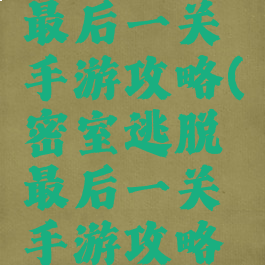 最后一关
手游攻略(
密室逃脱
最后一关
手游攻略